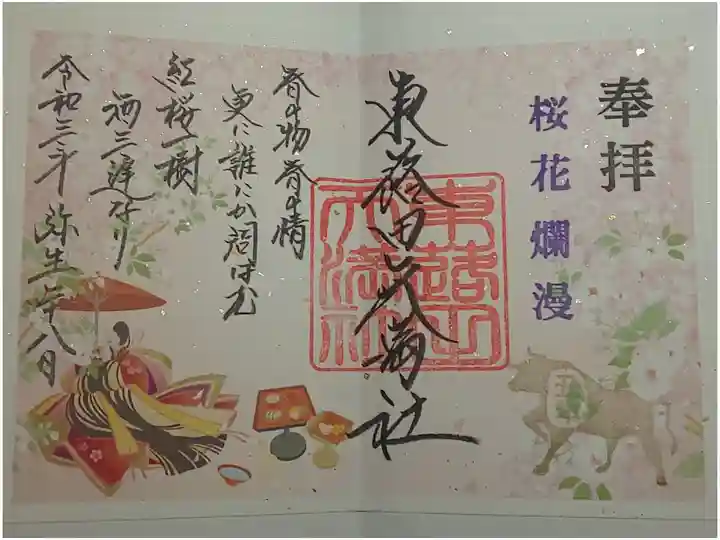 奉拝
桜花爛漫
東蕗田天満社
東蕗田天満社
春の物春の情
更に誰にか問はむ
紅桜一樹
酒三遅なり
令和三年弥生廿八日